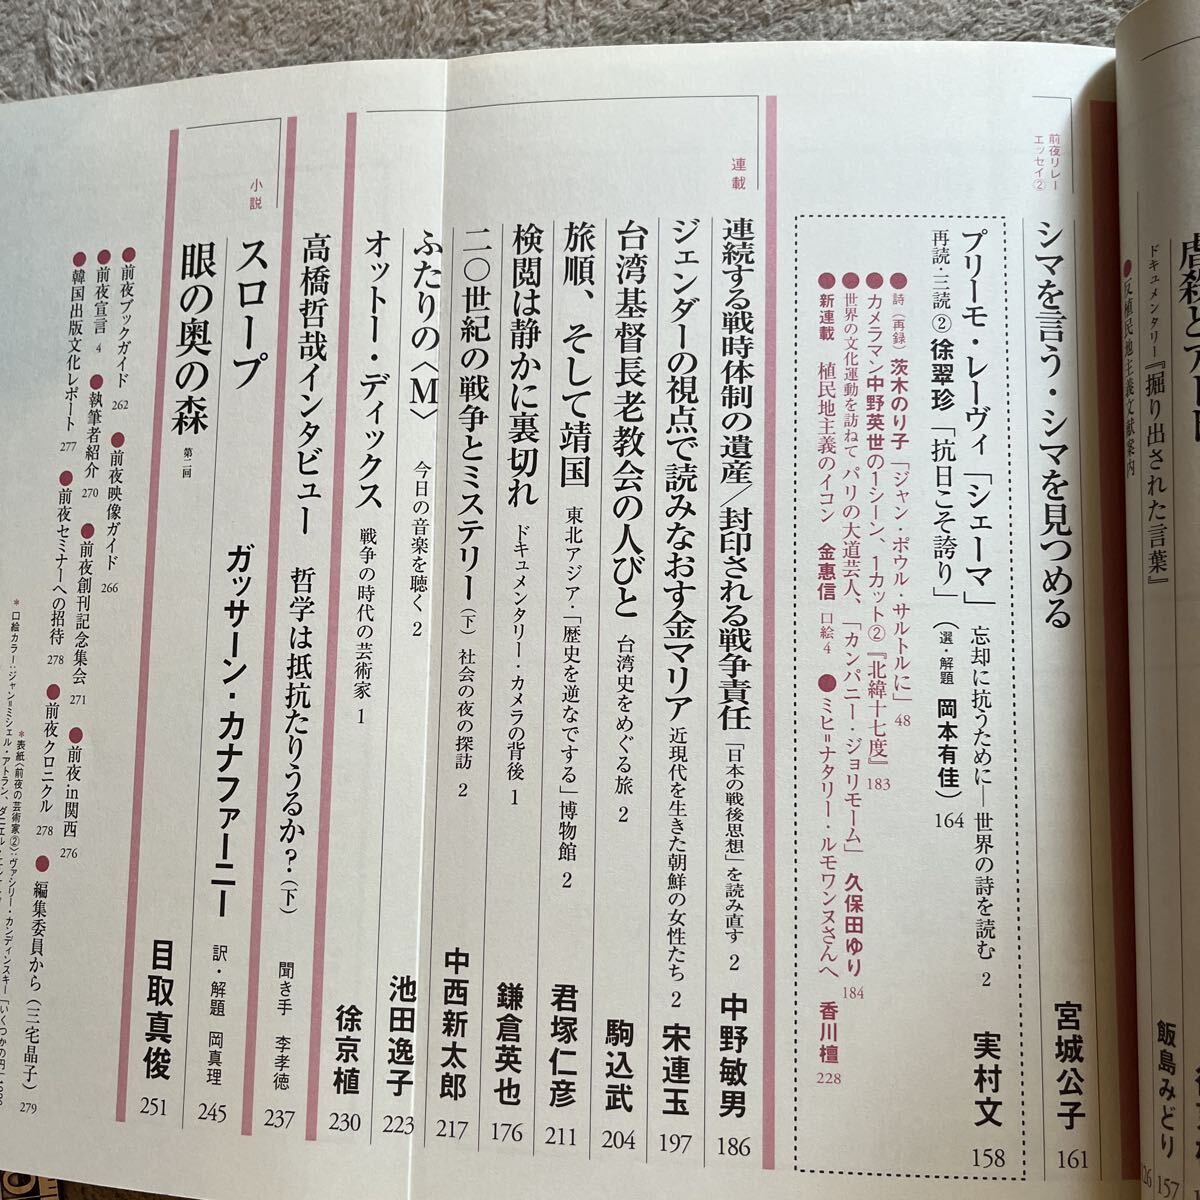 虐殺と
ドキュメンタリー『掘り出された言葉』
●反植民地主義文献案内
飯島みどり
157
前夜リレー
エッセイ②
シマを言う・シマを見つめる
宮城公子
161
プリーモ・レーヴィ「シェーマ」
忘却に抗うために―世界の詩を読む 2
実村文
158
再読・三読② 徐翠珍「抗日こそ誇り」(選・解題 岡本有佳) 164
●詩(再録) 茨木のり子「ジャン・ポウル・サルトルに」48
●カメラマン中野英世の1シーン、1カット②『北緯十七度』183
●世界の文化運動を訪ねて パリの大道芸人、「カンパニー・ジョリモーム」 久保田ゆり 184
●新連載 植民地主義のイコン 金惠信 口絵4
●ミヒ=ナタリー・ルモワンヌさんへ 香川檀 228
連載
連続する戦時体制の遺産/封印される戦争責任
「日本の戦後思想」を読み直す 2
中野敏男
186
ジェンダーの視点で読みなおす金マリア
近現代を生きた朝鮮の女性たち 2
宋連玉
197
台湾基督長老教会の人びと
台湾史をめぐる旅 2
駒込武
204
旅順、そして靖国
東北アジア・「歴史を逆なでする」博物館 2
君塚仁彦
211
検閲は静かに裏切れ
ドキュメンタリー・カメラの背後 1
鎌倉英也
176
二〇世紀の戦争とミステリー(下)
社会の夜の探訪 2
中西新太郎
217
ふたりの〈M〉
今日の音楽を聴く 2
池田逸子
223
オットー・ディックス
戦争の時代の芸術家 1
徐京植
230
高橋哲哉インタビュー 哲学は抵抗たりうるか?(下)
聞き手 李孝徳
237
小説
スロープ
ガッサーン・カナファーニー
訳・解題 岡真理
245
眼の奥の森 第二回
目取真俊
251
●前夜ブックガイド 262
●前夜映像ガイド 266
●前夜in関西 276
●前夜宣言 4
●執筆者紹介 270
●前夜創刊記念集会 271
●前夜クロニクル 278
●編集委員から(三宅晶子) 279
●韓国出版文化レポート 277
●前夜セミナーへの招待 278
*表紙〈前夜の芸術家②〉:ヴァシリー・カンディンスキー「いくつかの円」
*口絵カラー:ジャン=ミシェル・アトラン、